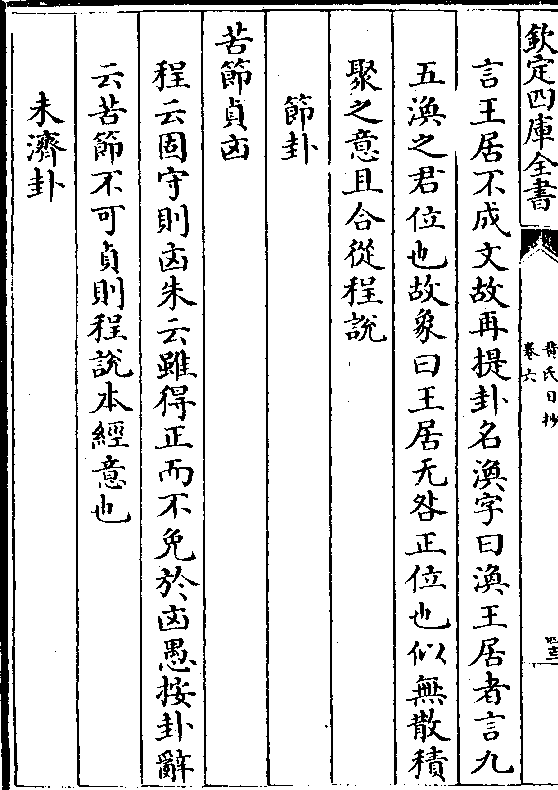 欽定四庫全書
黄氏日抄
卷六
言王居不成文故再提卦名渙字曰渙王居者言九
五渙之君位也故象曰王居无咎正位也似無散積
聚之意且合從程說
節卦
苦節貞凶
程云固守則凶朱云雖得正而不免於凶愚按卦辭
云苦節不可貞則程說本經意也
未濟卦